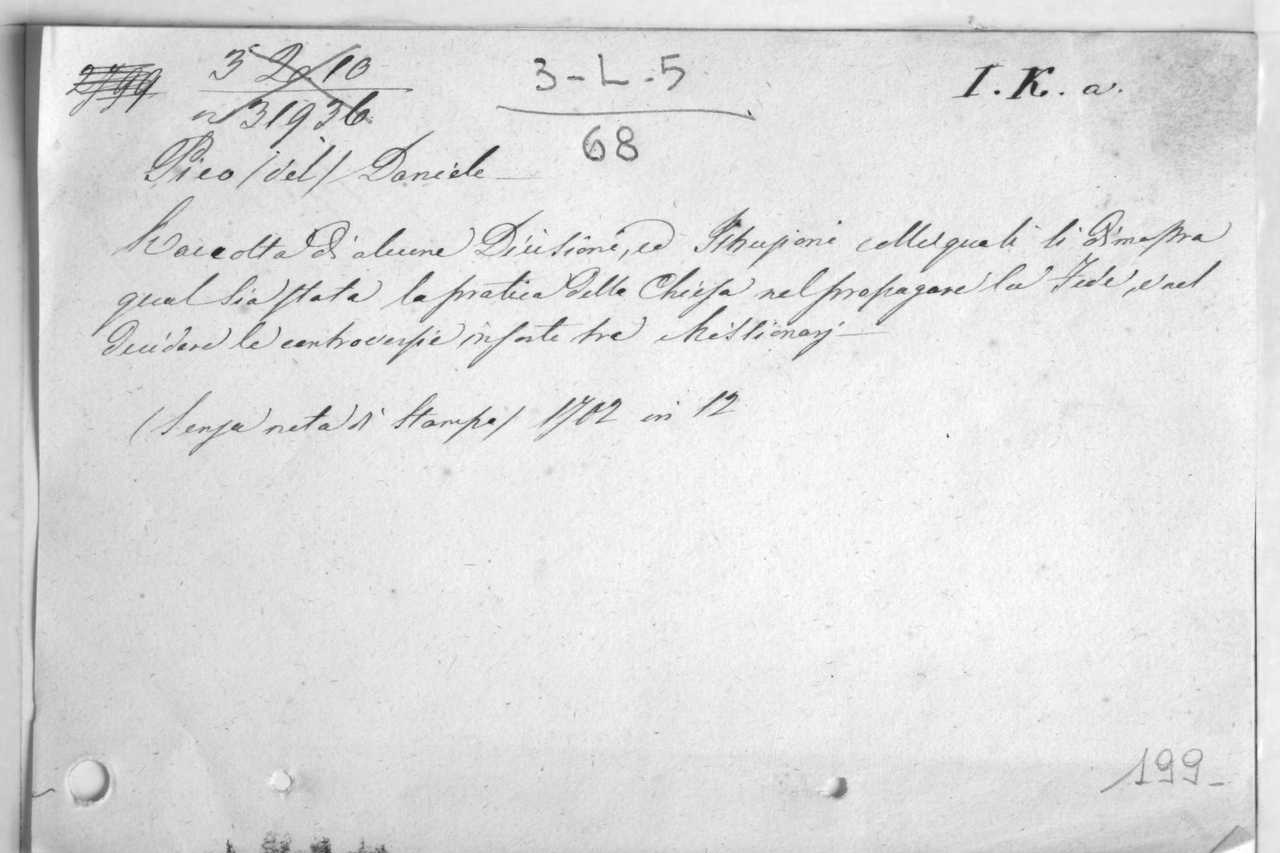 3 2 10 3-L-5 I. K. a.
n 31936 68
Pico /del/ Daniele
Raccolta di alcune Dicisioni, ed Istruzioni colle quali si dimostra
qual sia stata la pratica della Chiesa nel propagare la Fede, e nel
decidere le controversie insorte tra Missionarj
(Senza nota di Stampa) 1702 in 12
199